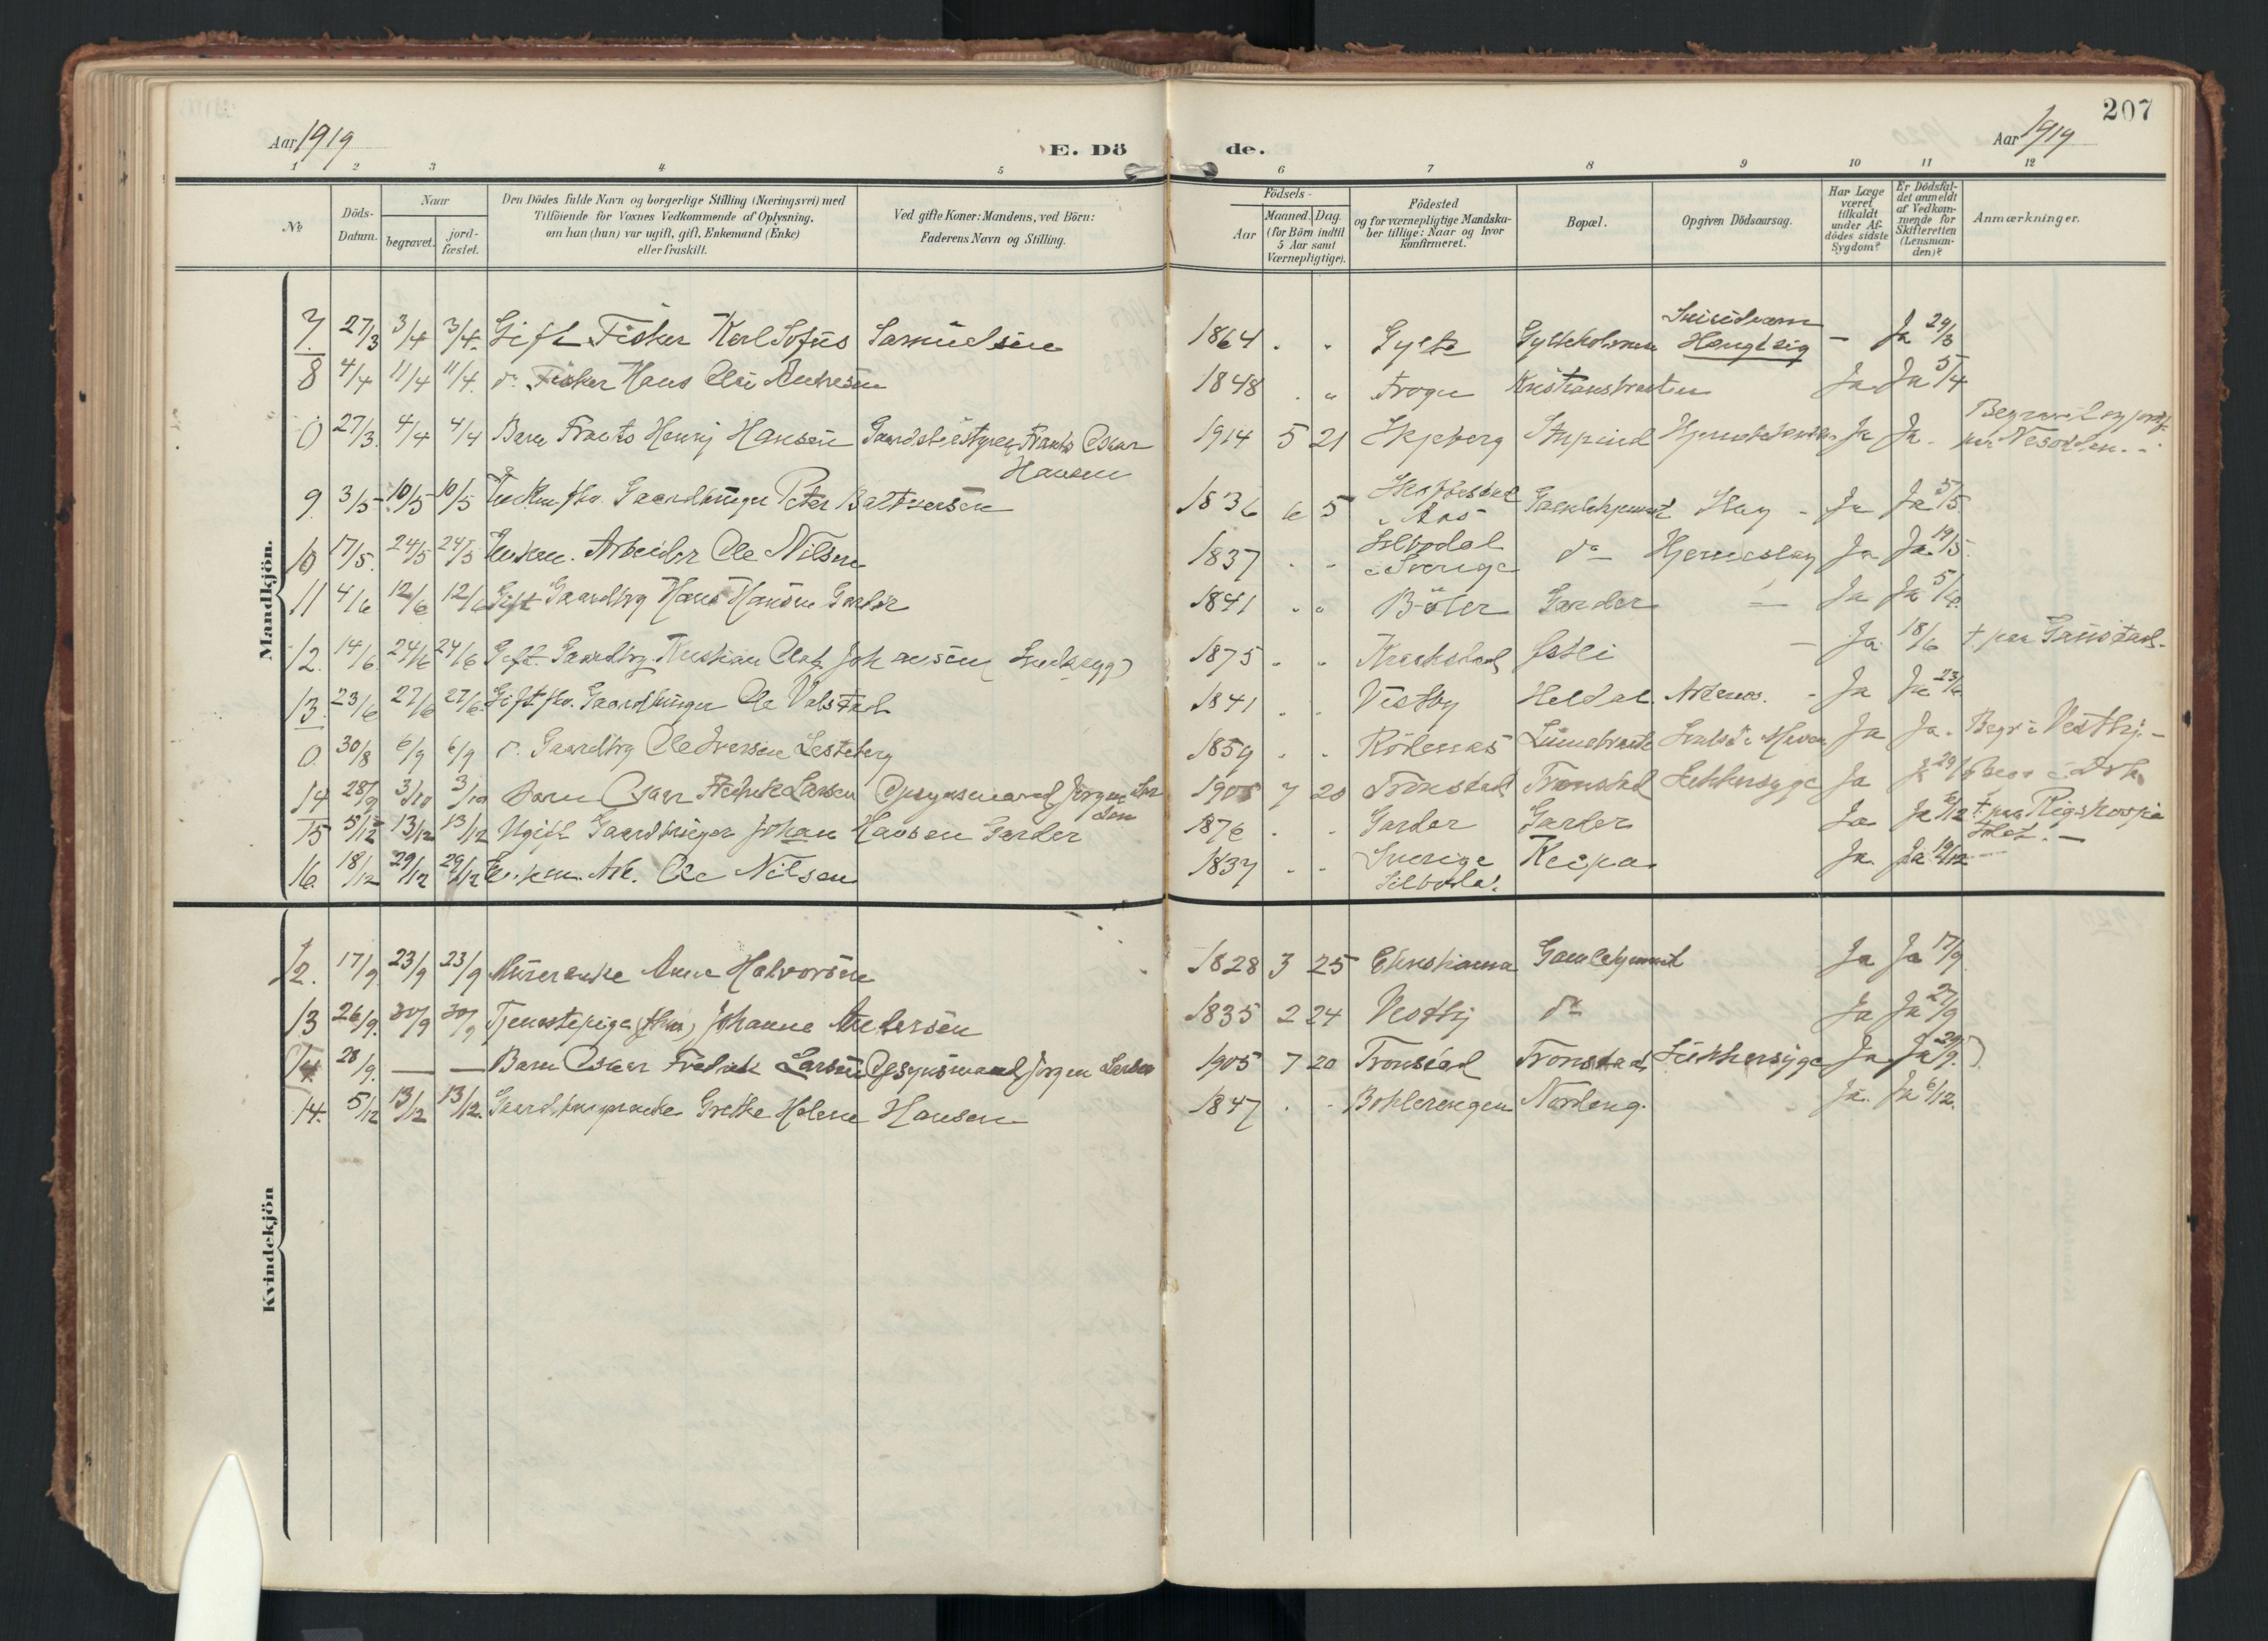 207
Aar 1919
E. Dö de.
Aar 1919
1 2 3 4 5 6 7 8 9 10 11 12
№
Döds-Datum.
Naar
begravet.
jord-fæstet.
Den Dödes fulde Navn og borgerlige Stilling (Næringsvei) med
Tilföiende for Voxnes Vedkommende af Oplysning,
om han (hun) var ugift, gift, Enkemand (Enke)
eller fraskilt.
Ved gifte Koner: Mandens, ved Börn:
Faderens Navn og Stilling.
Födsels-
Aar
Maaned. Dag.
(for Börn indtil
5 Aar samt
Værnepligtige).
Födested
og for værnepligtige Mandska-
ber tillige: Naar og hvor
konfirmeret.
Bopæl.
Opgiven Dödsaarsag.
Har Læge
været
tilkaldt
under Af-
dödes sidste
Sygdom?
Er Dödsfal-
det anmeldt
af Vedkom-
mende for
Skifteretten
(Lensman-
den)?
Anmærkninger.
Mandkjön.
7. 27/3 3/4 3/4. Gift Fisker Karl Sofus Samuelsen 1864 . . Gylte Hængt sig — Ja 29/3
8 4/4 11/4 11/4. do Fisker Hans 1848 . „ Frogn Ja Ja 5/4
0 27/3. 4/4 4/4 Barn Henrij Hansen Oscar 1914 5 21 Skjeberg Ja Ja.
Hansen Nesodden.
9. 3/5 10/5 10/5 Enkem. fhv. Gaardbruger Peter Baltsersen 1836 6 5 i Aas Ja Ja 5/5
10 17/5. 24/5 24/5 Enkem. Arbeider Ole Nilsen 1837 . . Silbodal i Sverige do Ja Ja 19/5.
11 4/6 12/6 12/6 Gift Gaardbrg Hans Hansen Garder 1841 . „ Böler Garder — Ja Ja 5/6.
12. 14/6 24/6 24/6 Gift Gaardbrg. Kristian Olaf Johansen 1875 . . Kraakstad — Ja. 18/6 † paa Gaustad.
13. 23/6 27/6 27/6. Gift fhv. Gaardbruger Ole 1841 . . Vestby Heldal Ja Ja 23/6
0. 30/8 6/9 6/9 do. Gaardbrg Ole Iversen 1859 . . Rödenæs Ja Ja. Begr i Vestby. —
14 28/9 3/10 3/10 Barn Oscar Fredrik Larsen Opsynsmand Jörgen Lar
sen 1905 7 20 Tronstad Tronstad Sukkersyge Ja Ja 29/9
15 5/12 13/12 13/12 Ugift Gaardbruger Johan Hansen Garder 1876 . . Garder Garder Ja Ja 6/12 † paa Rigshospi
talet. —
16. 18/12 29/12 29/12 Enkem. Arb. Ole Nilsen 1837 . . Sverige Ja. Ja 19/12
Silbodal.
Kvindekjön
12. 17/9. 23/9 23/9 Murerenke Anne Halvorsen 1828 3 25 Christiania Gamlehjemmet Ja Ja 17/9
13 26/9. 30/9 30/9 Tjenestepige (fhv.) Johanne Andersen 1835 2 24 Vestby do Ja Ja 27/9
(14 28/9. — — Barn Oscar Fredrik Larsen Opsynsmand Jörgen Larsen 1905 7 20 Tronstad Tronstad Sukkersyge Ja Ja 29/9.)
14. 5/12 13/12 13/12. Gaardbrugerenke Grethe Helene Hansen 1847 . . Bohlerengen Nordeng. Ja. Ja 6/12.